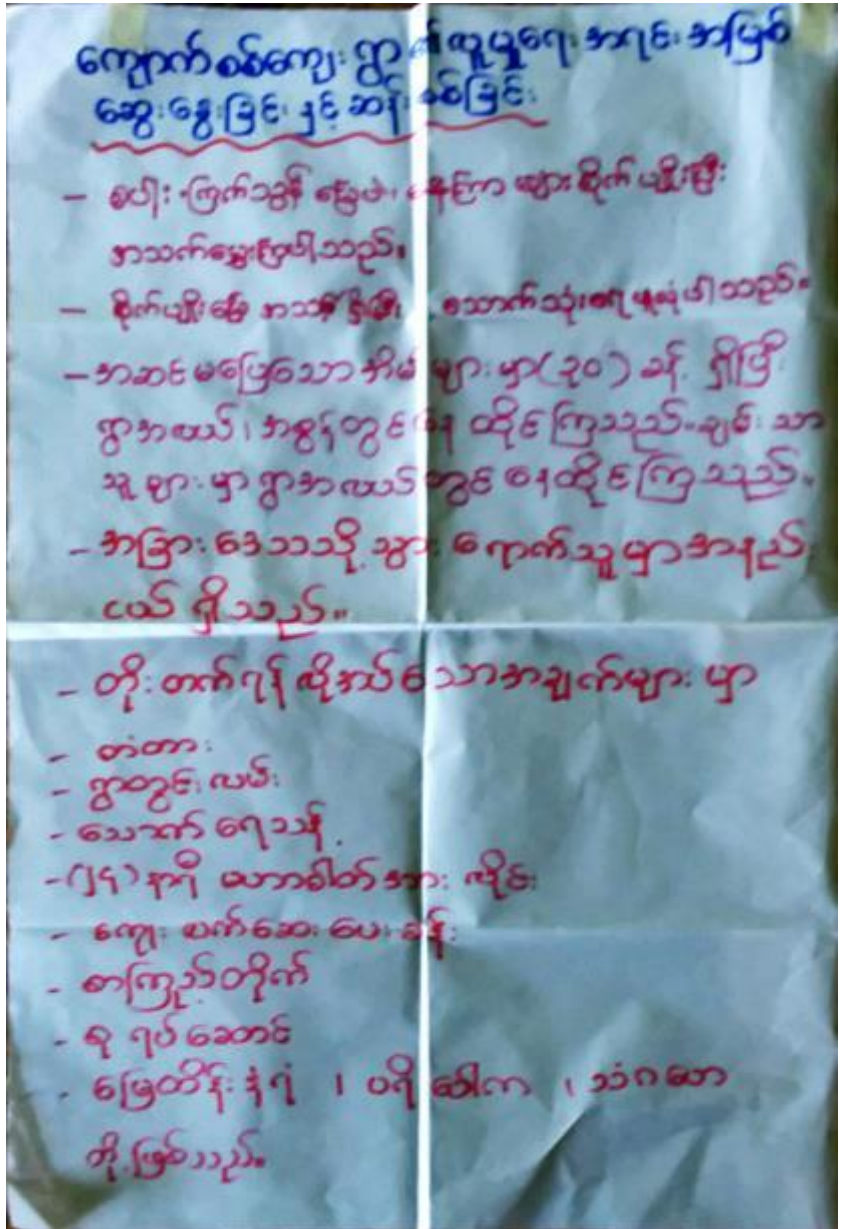 ကျောက်စစ်ကျေးရွာ ၏ လူမှုရေး အရင်းအမြစ်
ဆွေးနွေးခြင်း နှင့် ဆန်းစစ်ခြင်း
- စပါး ကြက်သွန် မြေပဲ၊ နေကြာ များစိုက်ပျိုးပြီး
အသက်မွေးကြပါသည်။
- စိုက်ပျိုးမြေ အသင့် ရှိပြီး သောက်သုံးရေ ဖူလုံပါသည်။
- အဆင်မပြေသော အိမ် များမှာ (၃၀) ခန့် ရှိပြီး
ရွာအလယ်၊ အစွန်တွင် နေ ထိုင်ကြသည်။ ချမ်းသာ
သူ များ မှာ ရွာအလယ်တွင် နေထိုင်ကြသည်။
- အခြား ဒေသသို့ သွား ရောက်သူ မှာ အနည်း
ငယ် ရှိသည်။
- တိုးတက်ရန် လိုအပ်သောအချက်များ မှာ
- တံတား
- ရွာတွင်း လမ်း
- သောက် ရေသန့်
- (၂၄) နာရီ ဓာတ်အား လိုင်း
- ကျေး လက်ဆေး ပေး ခန်း
- စာကြည့်တိုက်
- စု ရပ် ဆောင်
- မြေထိန်း နံရံ ၊ ပရိဘောဂ ၊ သံဂဟ
တို့ ဖြစ်သည်။